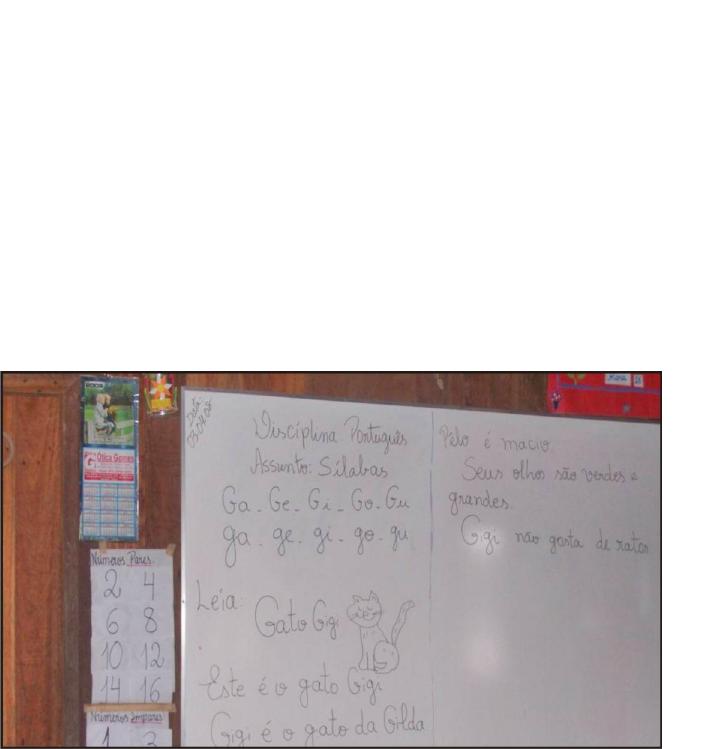 2008
Ótica Gomes
Números Pares
2 4
6 8
10 12
14 16
Números Ímpares
1 3
Data
03.04.08
Disciplina Português
Assunto: Sílabas
Ga - Ge - Gi - Go - Gu
ga - ge - gi - go - gu
Leia:
Gato Gigi
Este é o gato Gigi
Gigi é o gato da Gilda
Pelo é macio.
Seus olhos são verdes e
grandes.
Gigi não gosta de ratos